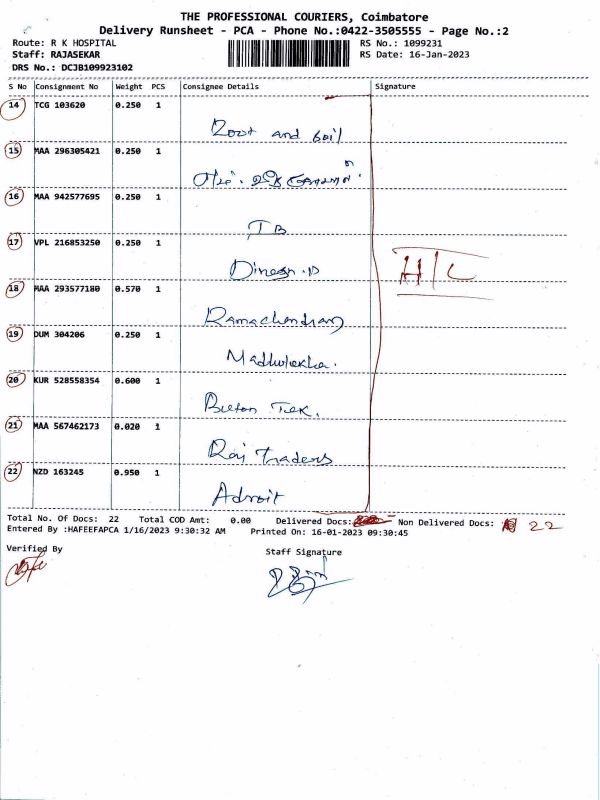 THE PROFESSIONAL COURIERS, Coimbatore
Delivery Runsheet - PCA - Phone No.:0422-3505555 - Page No.:2
Route: R K HOSPITAL RS No.: 1099231
Staff: RAJASEKAR RS Date: 16-Jan-2023
DRS No.: DCJB109923102
S No Consignment No Weight PCS Consignee Details Signature
14 TCG 103620 0.250 1
Root and Soil
15 MAA 296305421 0.250 1
16 MAA 942577695 0.250 1
TB
17 VPL 216853250 0.250 1
Dinesh.D
H/C
18 MAA 293577180 0.570 1
Ramachandran
19 DUM 304206 0.250 1
Madhulekha.
20 KUR 528558354 0.600 1
Tek.
21 MAA 567462173 0.020 1
Raj Traders
22 NZD 163245 0.950 1
Adroit
Total No. Of Docs: 22 Total COD Amt: 0.00 Delivered Docs: Non Delivered Docs: 22
Entered By :HAFEEFAPCA 1/16/2023 9:30:32 AM Printed On: 16-01-2023 09:30:45
Verified By Staff Signature